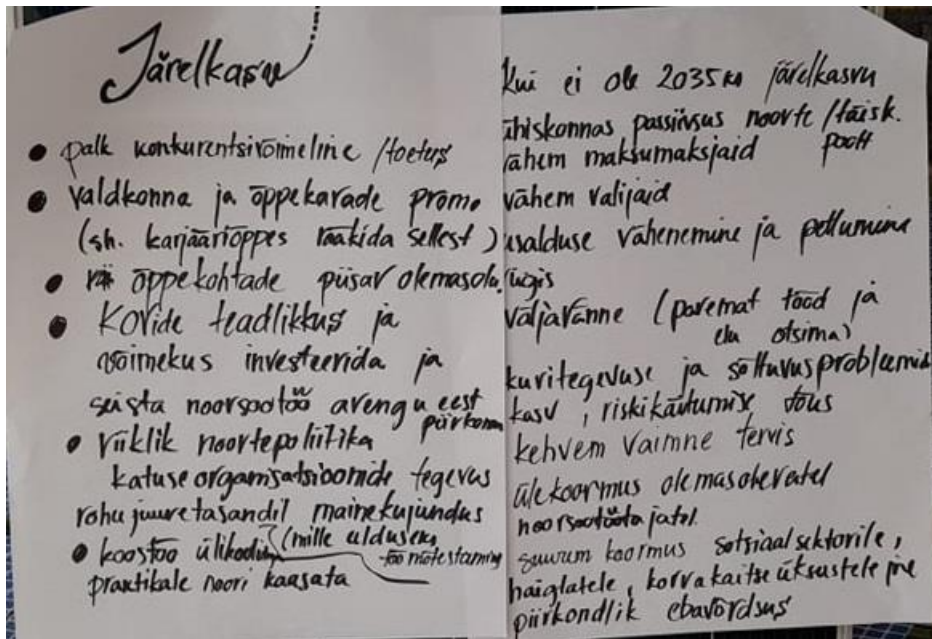 Järelkasv
• palk konkurentsivõimeline /toetus
• Valdkonna ja õppekavade promo
(sh. karjääriõppes rääkida sellest)
• õppekohtade piisav olemasolu
• KOVide teadlikkus ja
võimekus investeerida ja
seista noorsootöö arengu eest
piirkonnas
• riiklik noortepoliitika
katuseorganisatsioonide tegevus
rohujuuretasandil mainekujundus
• koostöö ülikool (mille olulisem
töö mõtestamine
praktikale noori kaasata
Kui ei ole 2035ks järelkasvu
ühiskonnas passiivsus noorte/täisk.
poolt
vähem maksumaksjaid
vähem valijaid
usalduse vähenemine ja pettumine
riigis
väljaränne (paremat tööd ja
elu otsima)
kuritegevuse ja sõltuvusprobleemid
kasv, riskikäitumise tõus
kehvem vaimne tervis
ülekoormus olemasolevatel
noorsootöötajatel
suurem koormus sotsiaalsektorile,
haiglatele, korrakaitseüksustele jne
piirkondlik ebavõrdsus